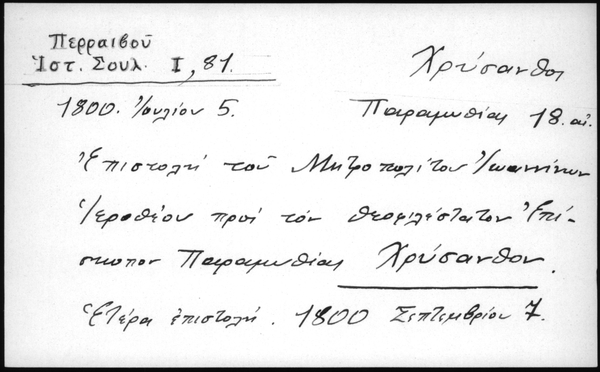 Περραιβοῦ
Ἱστ. Σουλ. I, 81.
Χρύσανθος
1800. Ἰουλίου 5.
Παραμυθίας 18. αἰ.
Ἐπιστολὴ τοῦ Μητροπολίτου Ἰωαννίνων
Ἱεροθέου πρὸς τὸν θεοφιλέστατον Ἐπί-
σκοπον Παραμυθίας Χρύσανθον.
Ἑτέρα ἐπιστολή. 1800 Σεπτεμβρίου 7.